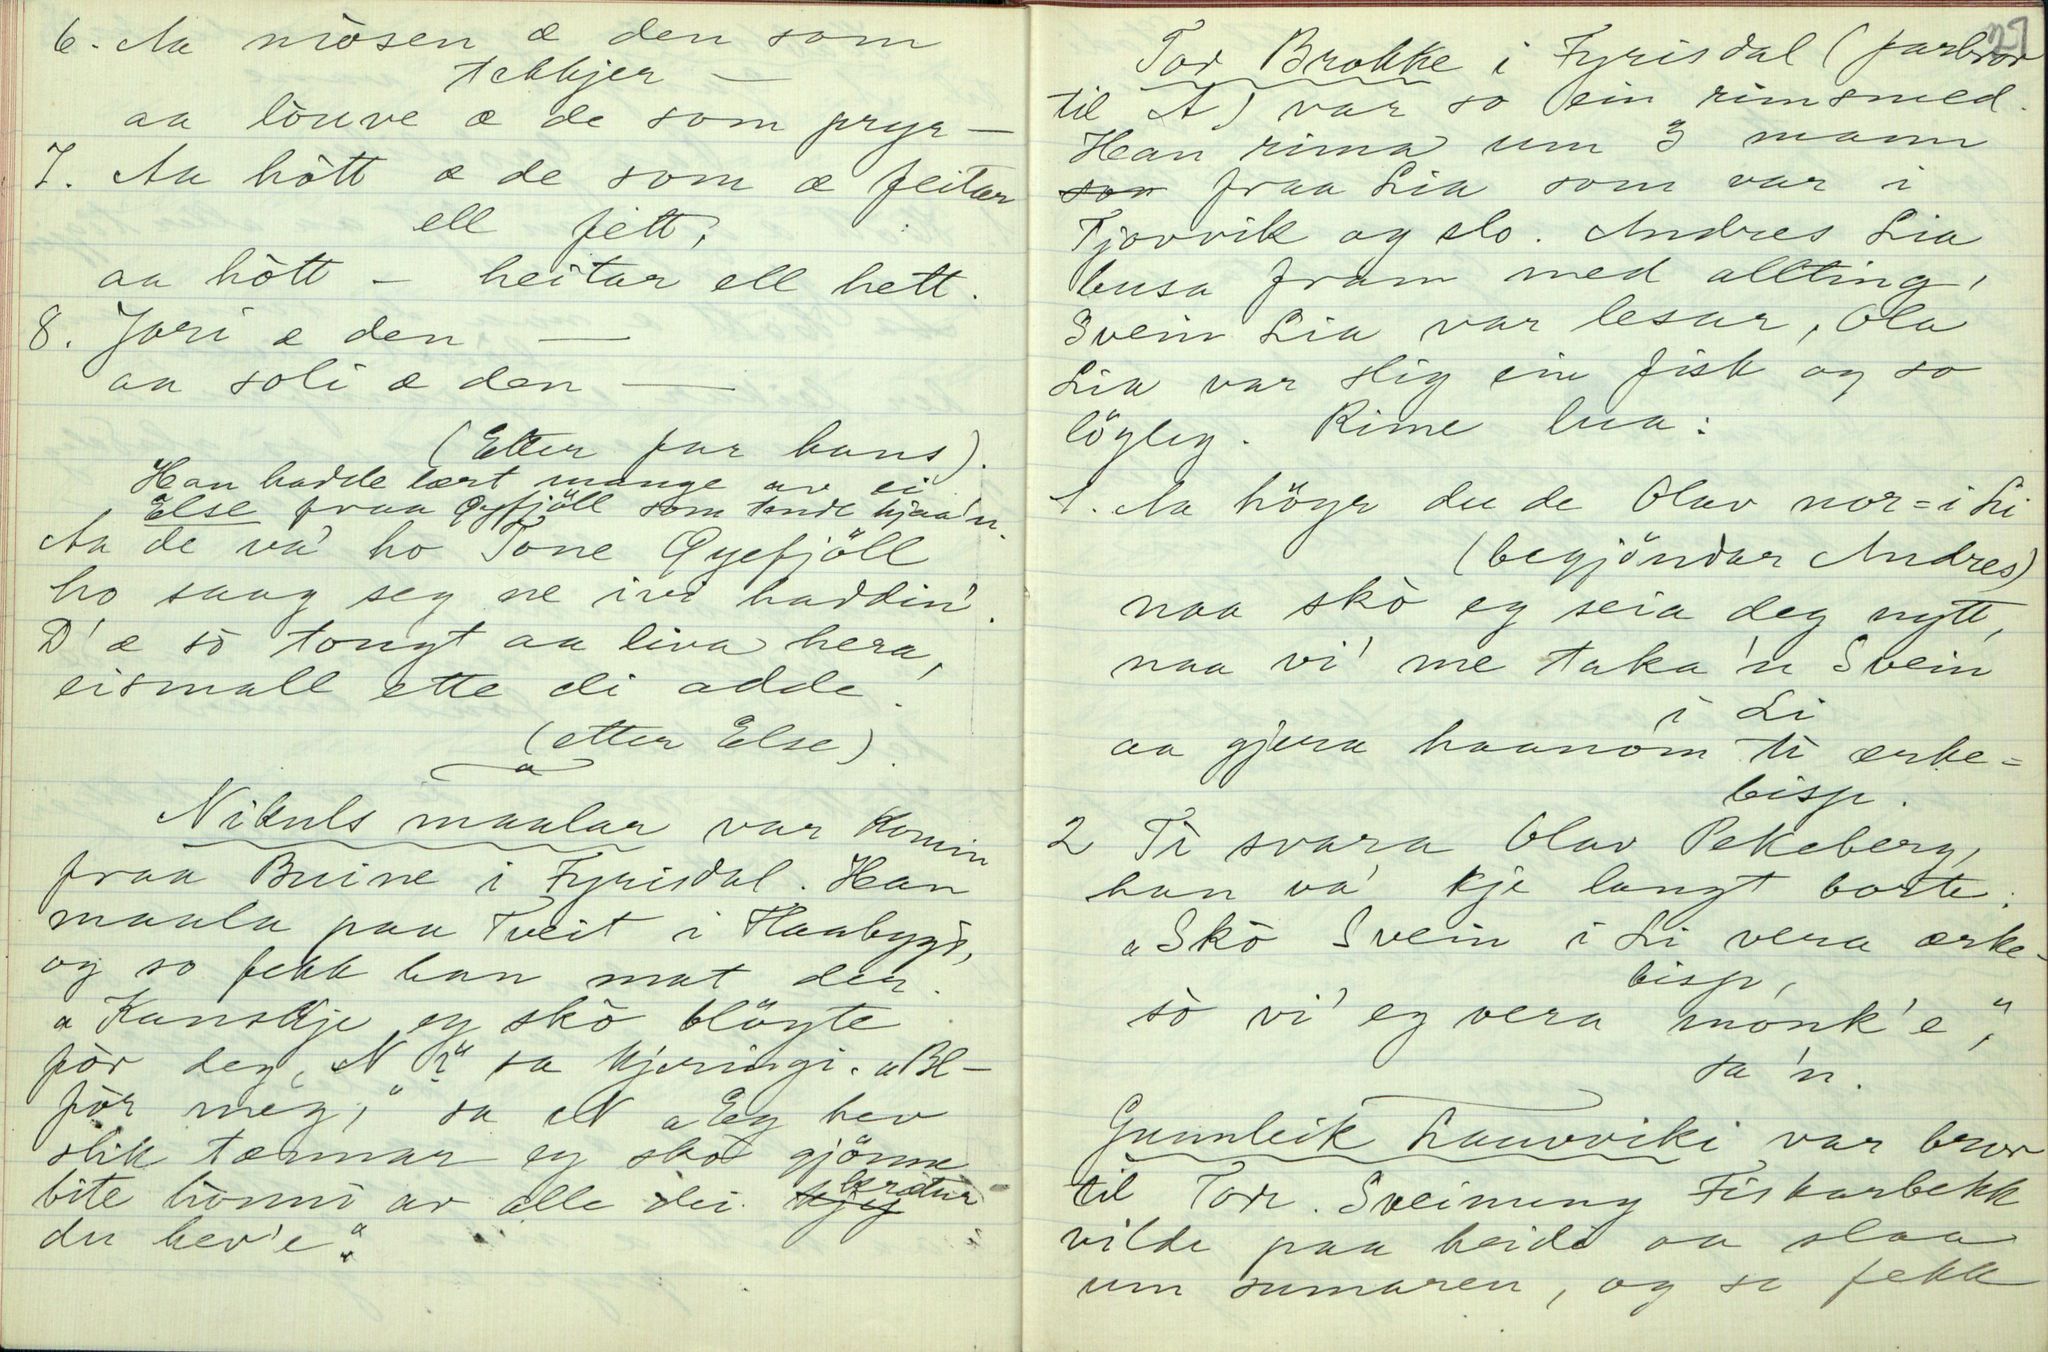 6. Aa mòsen æ den som
tekkjer —
aa lòuve æ de som pryr —
7. Aa hòtt æ de som æ feitar
ell fett,
aa hòtt — heitar ell hett.
8. Jori æ den —
aa soli æ den —
(Etter far hans).
Han hadde lært mange av ei
Else fraa Øyfjöll som tende hjaa'n.
Aa de va' ho Tone Øyefjöll
ho saag seg ne ivi haddin'.
D'æ sò tongt aa liva hera,
eismall ette di adde.
(etter Else).
Nikuls maalar var komin
fraa Bruine i Fyrisdal. Han
maala paa Tveit i Haabygd,
og so fekk han mat der.
"Kanskje eg skò bløyte
før deg, N?" sa kjeringi. "Bl—
før meg," sa N "Eg hev
slik tænnar eg skò gjönne
bite hònnì av alle dei kjy krætur
du hev'e."
27
Tor Brokke i Fyrisdal (farbror
til A) var so ein rimsmed.
Han rima um 3 mann
som fraa Lia som var i
Tjovvik og slo. Andres Lia
busa fram med allting,
Svein Lia var lesar, Ola
Lia var slig ein fisk og so
löglig. Rime lua:
1. Aa höyr du de Olav nor=i Li
(begjöndar Andres)
naa skò eg seia deg nytt,
naa vi' me taka 'n Svein
i Li
aa gjera haanòm ti ærke=
bisp.
2 Ti svara Olav Pekeberg,
han va' kje langt borte:
"Skò Svein i Li vera ærke-
bisp,
sò vi' eg vera monk'e",
sa'n.
Gunnleik Lauvviki var bror
til Tor. Sveinung Fiskarbekk
vilde paa heidi aa slaa
um sumaren, og so fekk